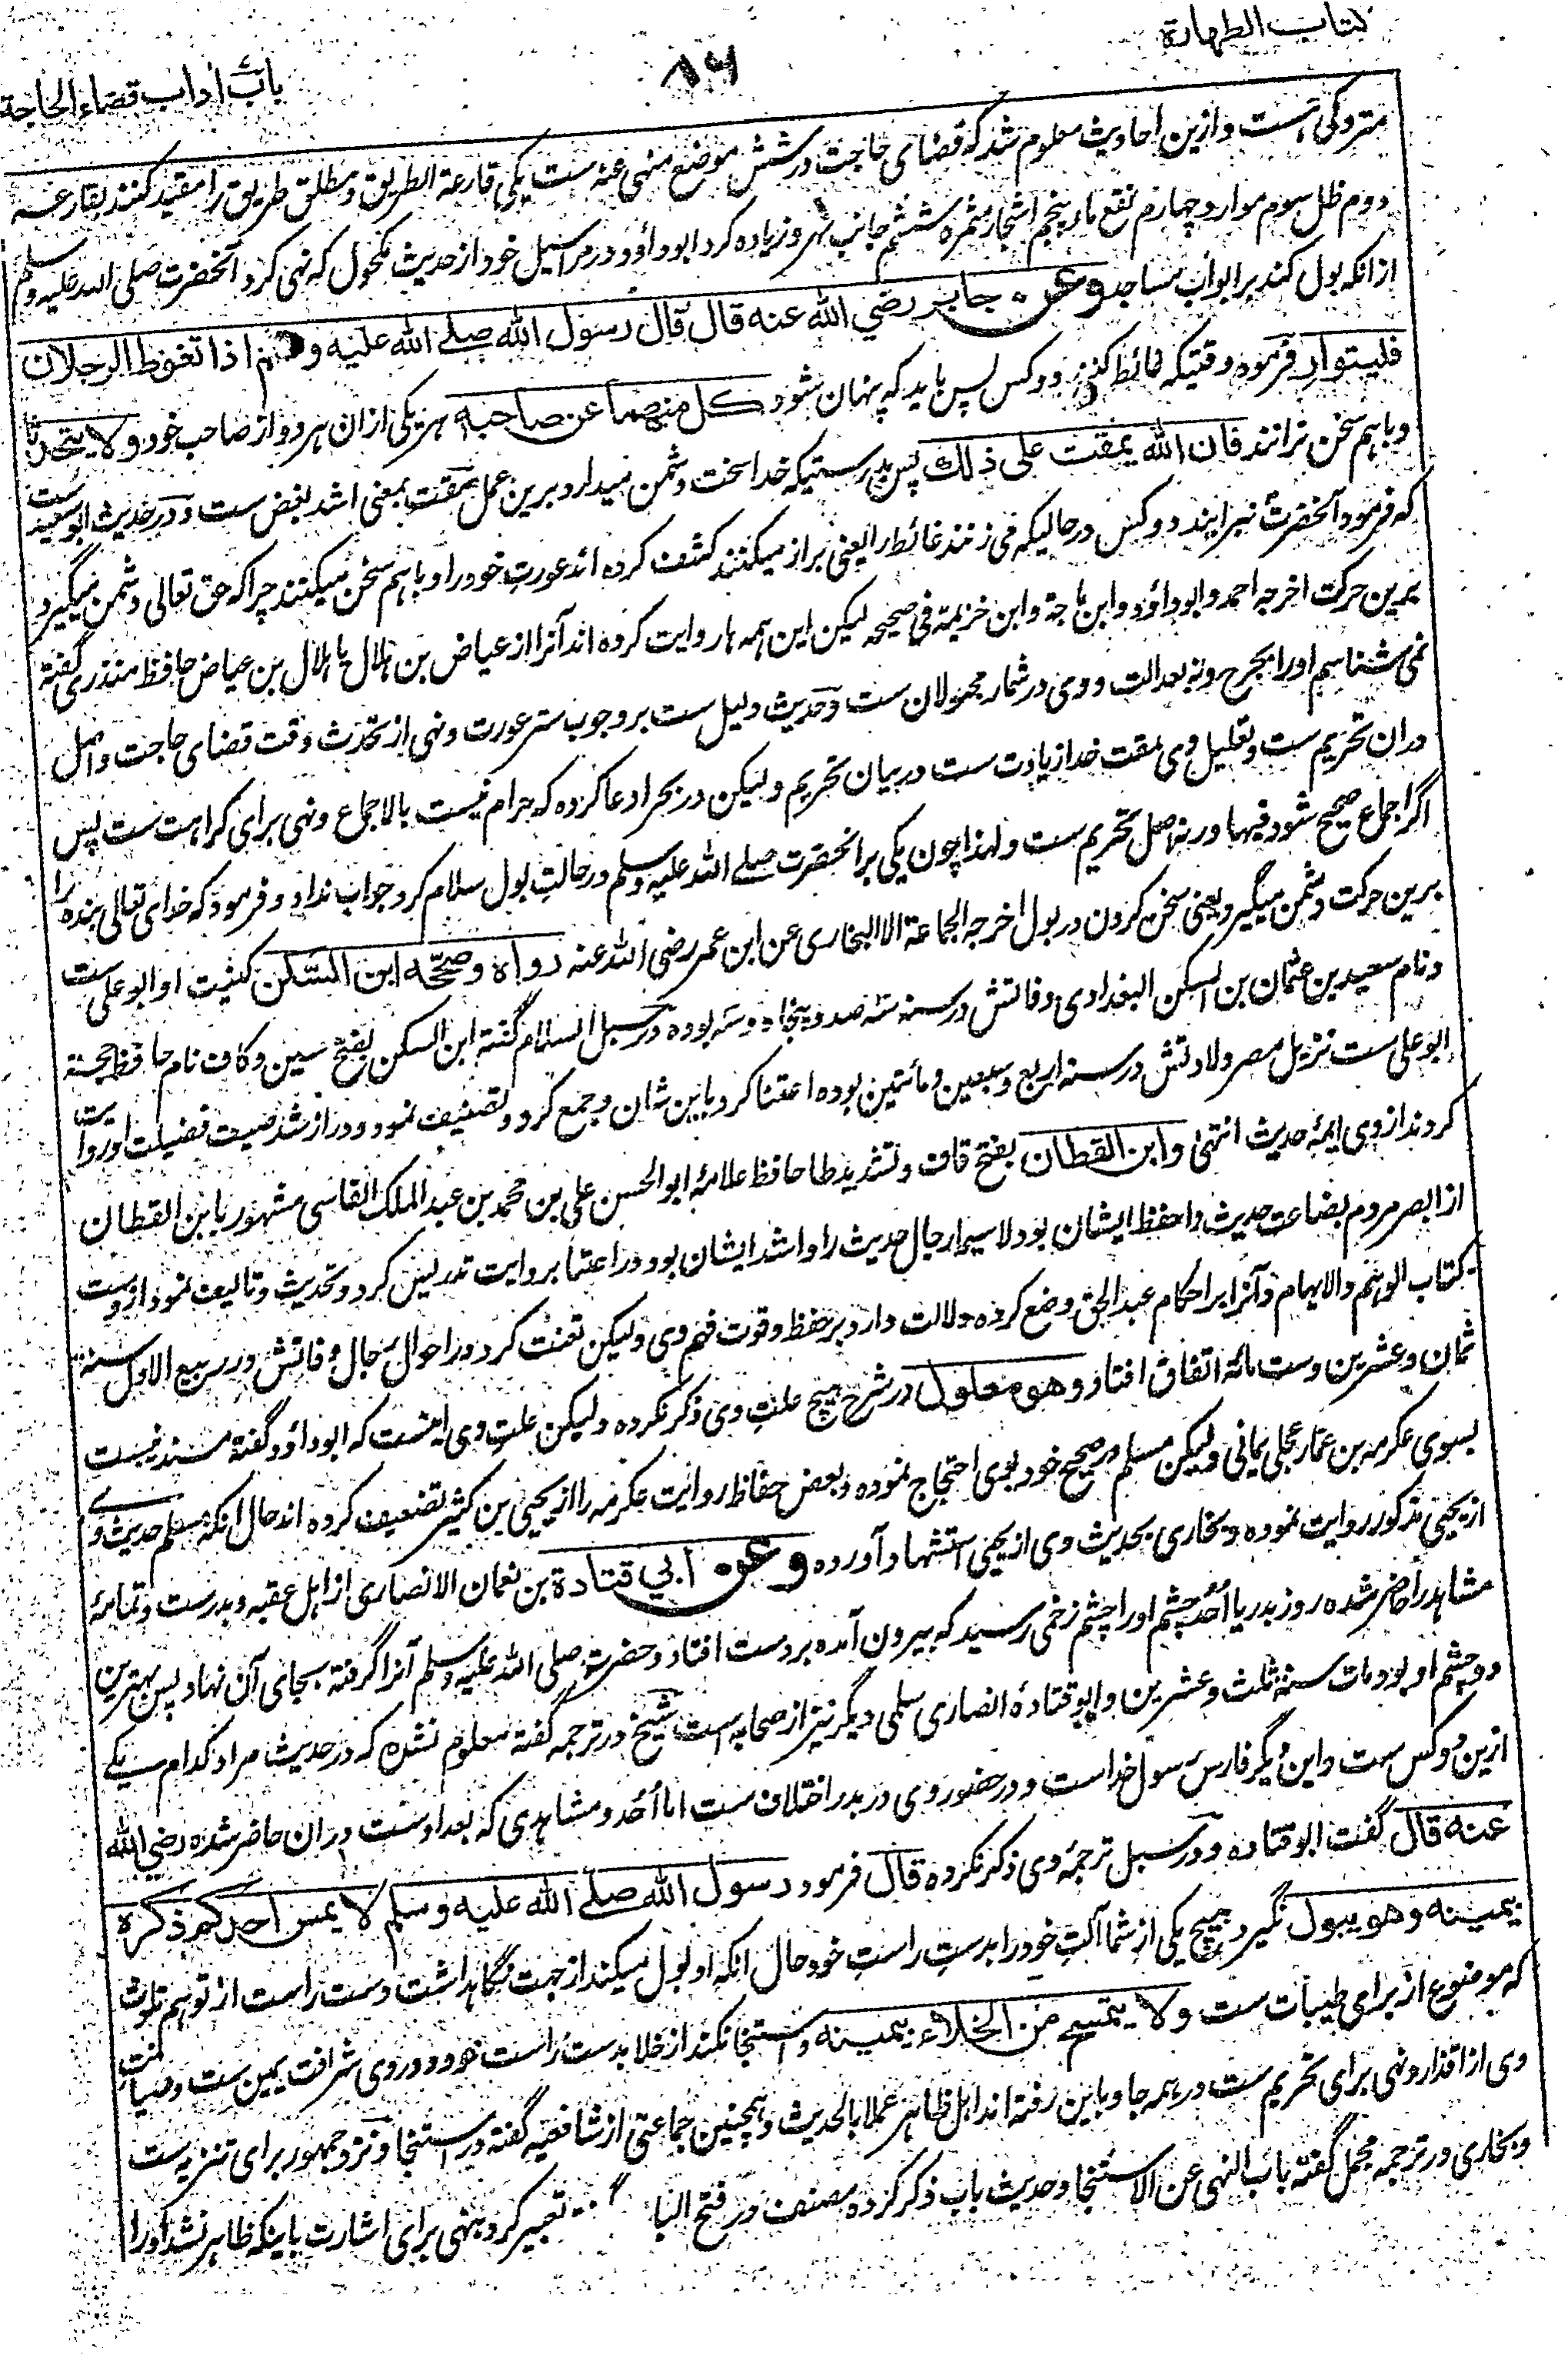 كتاب الطهارة
۸۶
باب آداب قضاء الحاجة
متروکی ست و ازین احادیث معلوم شد که قضای حاجت در شش موضع منهی عنه ست یکی قارعة الطریق و مطلق طریق را مقید کنند بقارعه
دوم ظل سوم موارد چهارم نقع ماء پنجم اشجار مثمره ششم جانب نهر و زیاده کرد ابوداؤد در مراسیل خود از حدیث مکحول که نهی کرد آنحضرت صلی الله علیه وسلم
از انکه بول کند بر ابواب مساجد وعن جابر رضي الله عنه قال قال رسول الله صلے الله عليه و اذا تغوط الرجلان
فليتوار فرمود وقتیکه غائط کنند دو کس پس باید که پنهان شود كل منهما عن صاحبه هر یکی از ان هر دو از صاحب خود ولا يتحدثا
و باهم سخن نرانند فان الله يمقت على ذلك پس بدرستیکه خدا سخت دشمن میدارد برین عمل مقت بمعنی اشد بغض ست و در حدیث ابو سعید ست
که فرمود آنحضرت نبرایند دو کس در حالیکه می زنند غائط را یعنی براز میکنند کشف کرده اند عورت خود را و باهم سخن میکنند چرا که حق تعالی دشمن میگیرد
برین حرکت اخرجه احمد و ابوداؤد و ابن ماجة و ابن خزیمة فی صحیحه لیکن این همه ها روایت کرده اند آنرا از عیاض بن هلال یا هلال بن عیاض حافظ منذری گفته
نمی شناسم او را بجرح و نه بعدالت و وی در شمار مجهولان ست و حدیث دلیل ست بر وجوب ستر عورت و نهی از تحدث وقت قضای حاجت و اصل
دران تحریم ست و تعلیل وی بمقت خدا زیادت ست در بیان تحریم ولیکن در بحر ادعا کرده که حرام نیست بالاجماع و نهی برای کراهت ست پس
اگر اجماع صحیح شود فبها ورنه اصل تحریم ست و لهذا چون یکی بر آنحضرت صلے الله علیه وسلم در حالت بول سلام کرد جواب نداد و فرمود که خدای تعالی بنده را
برین حرکت دشمن میگیرد یعنی سخن کردن در بول اخرجه الجماعة الا البخاری عن ابن عمر رضی الله عنه رواه وصححه ابن السكن کنیت او ابو علی ست
و نام سعید بن عثمان بن السکن البغدادی وفاتش در سنه سه صد و پنجاه و سه بوده در سبل السلام گفته ابن السکن بفتح سین و کاف نام حافظ حجة
ابو علی ست نزیل مصر ولادتش در سنه اربع وسبعین و مائتین بوده اعتنا کرد باین شان و جمع کرد و تصنیف نمود و دراز شد صیت فضیلت او روایت
کردند از وی ایمۀ حدیث انتهی وابن القطان بفتح قاف و تشدید طا حافظ علامۀ ابو الحسن علی بن محمد بن عبد الملک الفاسی مشهور بابن القطان
از ابصر مردم بضاعت حدیث و احفظ ایشان بود لاسیما رجال حدیث را و اشد ایشان بود در اعتنا بروایت تدریس کرد و تحدیث و تالیف نمود از وست
کتاب الوهم والایهام و آنرا بر احکام عبد الحق وضع کرده دلالت دارد بر حفظ و قوت فهم وی ولیکن تعنت کرد در احوال رجال وفاتش در ربیع الاول سنه
ثمان و عشرین وست مائه اتفاق افتاد وهو معلول در شرح هیچ علت وی ذکر نکرده ولیکن علت وی اینست که ابوداؤد گفته مسند نیست
بسوی عکرمه بن عمار عجلی یمانی ولیکن مسلم در صحیح خود بوی احتجاج نموده و بعض حفاظ روایت عکرمه را از یحیی بن کثیر تضعیف کرده اند حال آنکه مسلم حدیث وے
از یحیی مذکور روایت نموده و بخاری بحدیث وی از یحیی استشهاد آورده وعن ابي قتادة بن نعمان الانصاری از اهل عقبه و بدرست و تمامۀ
مشاهد را حاضر شده روز بدر یا احد چشم او را چشم زخمی رسید که بیرون آمده بر دست افتاد و حضرت صلی الله علیه وسلم آنرا گرفته بجای آن نهاد پس بهترین
دو چشم او بود مات سنة ثلث و عشرین و ابو قتادۀ انصاری سلمی دیگر نیز از صحابه است شیخ در ترجمه گفته معلوم نشده که در حدیث مراد کدام یکے
ازین دو کس ست و این دیگر فارس رسول خداست و در حضور وی در بدر اختلاف ست اما أحد و مشاهدی که بعد اوست دران حاضر شده رضي الله
عنه قال گفت ابو قتاده و در سبل ترجمۀ وی ذکر نکرده قال فرمود رسول الله صلے الله عليه وسلم لا يمس احدكم ذكره
بيمينه وهو يبول نگیرد هیچ یکی از شما آلت خود را بدست راست خود حال آنکه او بول میکند از جهت نگاهداشت دست راست از توهم تلوث
که موضوع از برای طیبات ست ولا يتمسح من الخلاء بيمينه و استنجا نکند از خلا بدست راست خود و در وی شرافت یمین ست و صیانت
وی از اقذار و نهی برای تحریم ست در همه جا و باین رفته اند اهل ظاهر عملا بالحدیث و همچنین جماعتی از شافعیه گفته در استنجا و نزد جمهور برای تنزیه ست
و بخاری در ترجمه مجمل گفته باب النهی عن الاستنجا و حدیث باب ذکر کرده مصنف در فتح البا تعبیر کرد بنهی برای اشارت باینکه ظاهر نشد او را